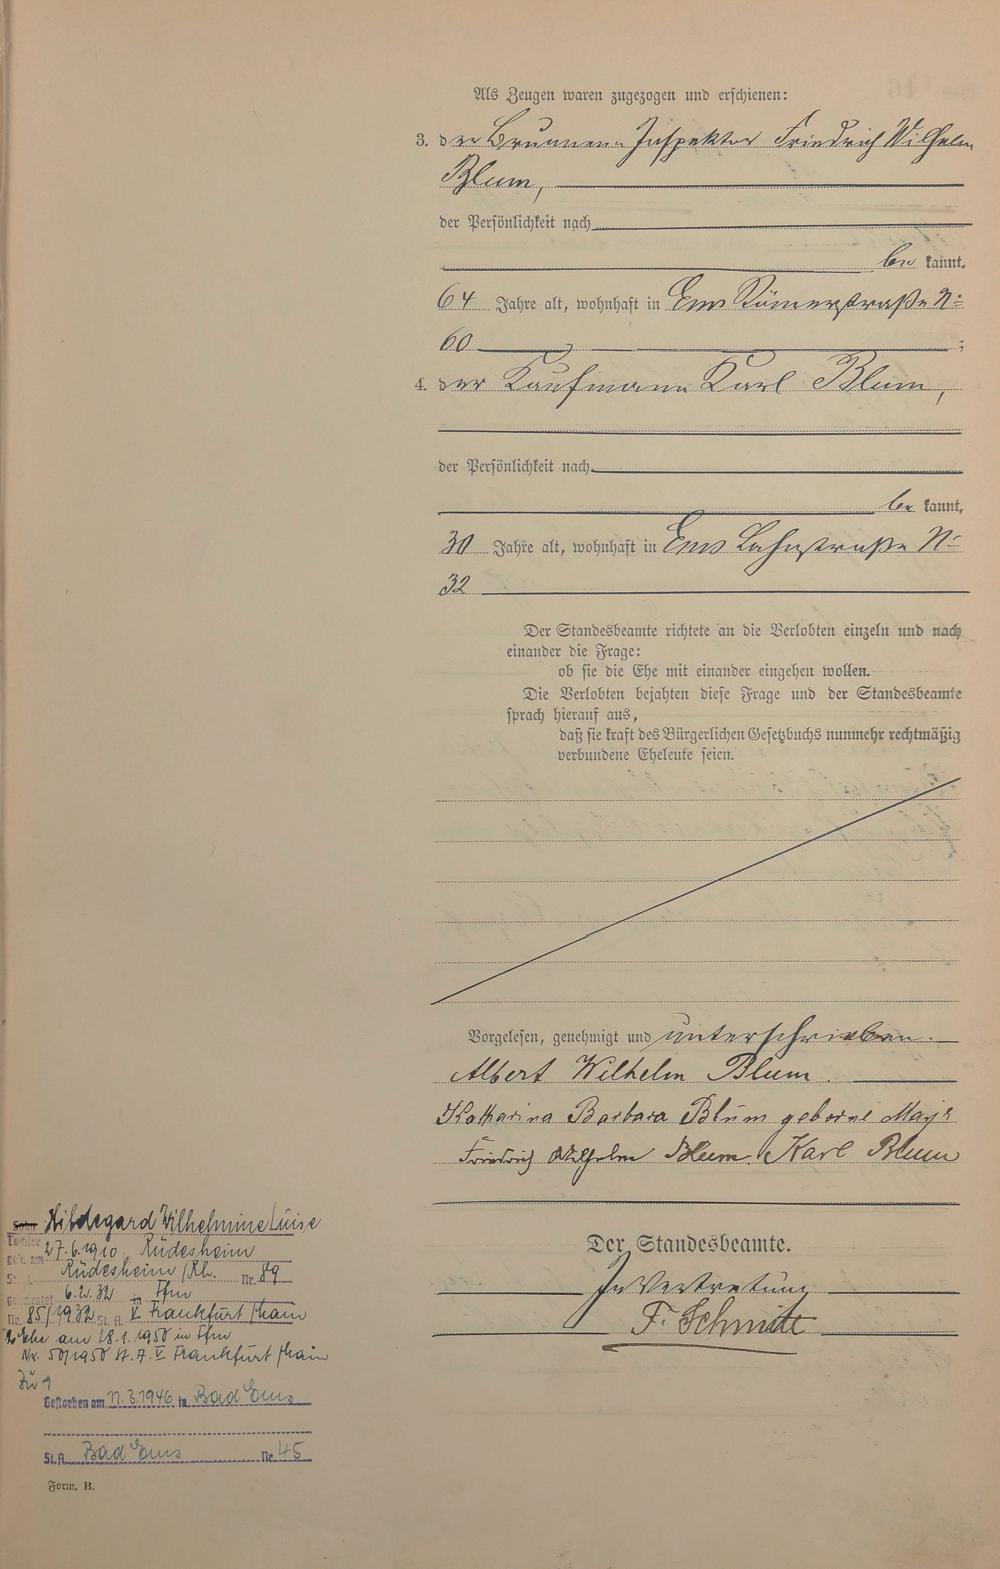 Als Zeugen waren zugezogen und erschienen:
3. der Brunnen-Inspektor Friedrich Wilhelm
Blum,
der Persönlichkeit nach
be kannt,
64 Jahre alt, wohnhaft in Ems Römerstraße N:
60 ;
4. der Kaufmann Karl Blum,
der Persönlichkeit nach
be kannt,
30 Jahre alt, wohnhaft in Ems Lahnstraße N:
32
Der Standesbeamte richtete an die Verlobten einzeln und nach
einander die Frage:
ob sie die Ehe mit einander eingehen wollen.
Die Verlobten bejahten diese Frage und der Standesbeamte
sprach hierauf aus,
daß sie kraft des Bürgerlichen Gesetzbuchs nunmehr rechtmäßig
verbundene Eheleute seien.
Vorgelesen, genehmigt und unterschrieben.
Albert Wilhelm Blum.
Katharina Barbara Blum geborne
Friedrich Wilhelm Blum. Karl Blum
Der Standesbeamte.
In Vertretung
F. Schmitt
Sohn Hildegard Wilhelmine Luise
Tochter
geb. am 27.6.1910 Rüdesheim
St. A. Rüdesheim/Rh. Nr. 89
6.2.32 in Ffm
Nr. 85/1932 St. A. V Frankfurt/Main
2. Ehe am 28.1.1950 in Ffm
Nr. 50/1950 St. A. V Frankfurt/Main
Zu 1
Gestorben am 11.3.1946 in Bad Ems
St. A. Bad Ems Nr. 45
Form. B.